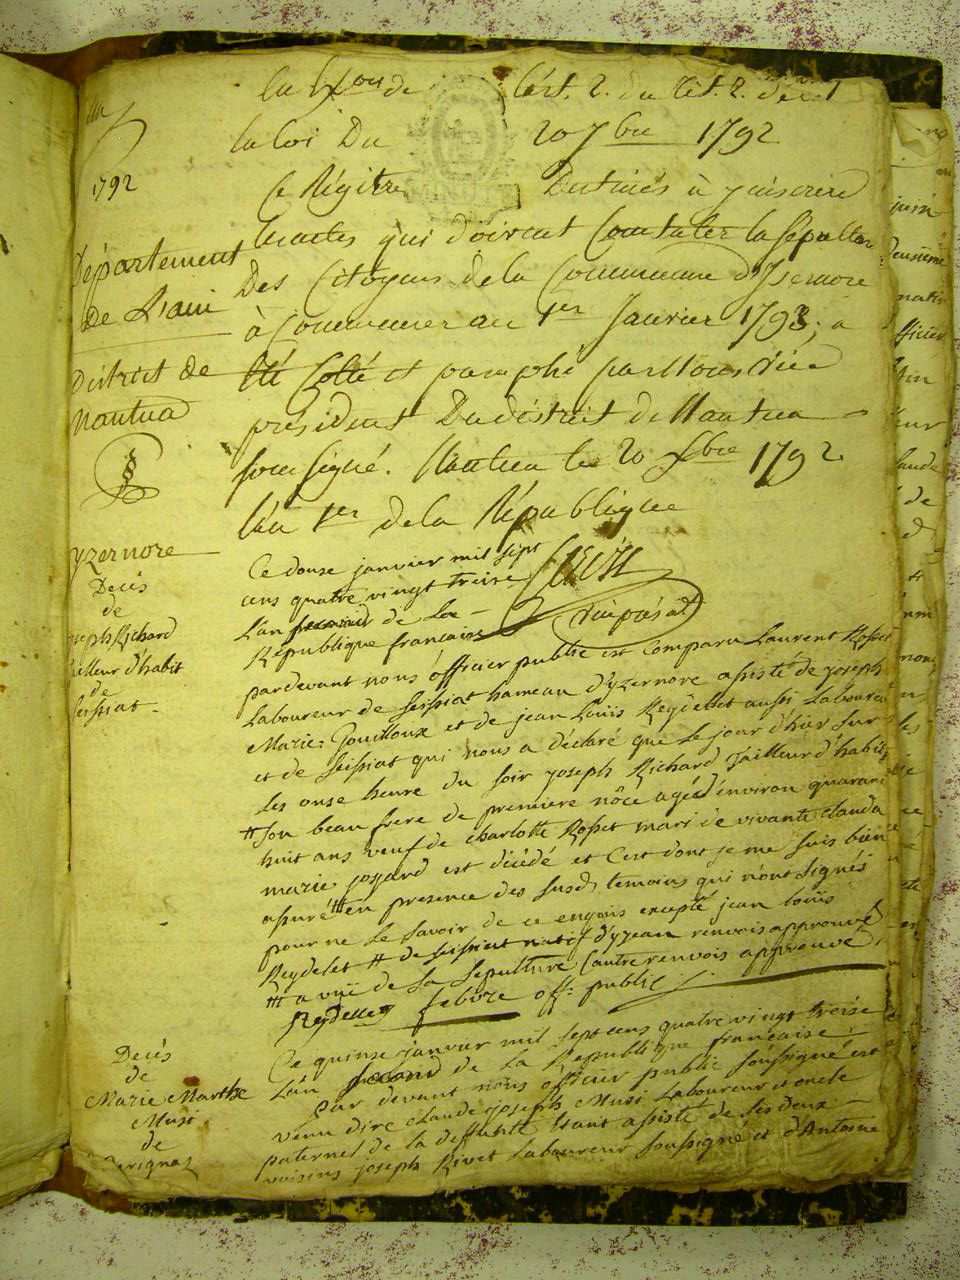 1792
Département
de L'ain
District de
Nantua
la loi Du 20 7bre 1792
Ce Régitre Destinés à y inscrire
les actes qui doivent Constater la Sépulture
Des Citoyens de la Commune d'Isernore
à Commencer au 1er Janvier 1793, a
été Cotté et paraphé par Nous
président Du district de Nantua
soussigné. Nantua le 20 Xbre 1792
l'an 1er de la République
yzernore
Deces
de
joseph Richard
tailleur d'habit
de
seissiat
Ce douse janvier mil sept
cens quatre vingt treise
L'an second de La
Republique francaise
pardevant nous officier public est Comparu Laurent Rosset
Laboureur de seissiat hameau D'yzernore assisté de joseph
Marie Gouilloux et de jean Louis Reydelet aussi Laboureur
et de seissiat qui nous a déclaré que Le jour d'hier sur
Les onse heure du soir joseph Richard Tailleur d'habits
# son beau frere de premiere nôce agée d'environ quarante
huit ans veuf de charlotte Rosset mari de vivante claudа
marie jossard est décédé et C'est dont je me suis bien
assuré ## en presence des susds temoins qui n'ont signés
pour ne Le savoir de ce enquis excepté jean loüis
Reydelet # de seissiat natif d'yzean renvois approuvé
## a vuë de La sepulture L'autre renvois approuvé
Reydellet febvre off. public
Decés
de
Marie Marthe
Musi
de
Ce quinse janvier mil sept cens quatre vingt treise
L'an second de La Republique francaise
par devant nous officier public soussigné est
venu dire claude joseph Musi Laboureur et oncle
paternel de La deffunte Etant assisté de ses deux
voisins joseph Rivet Laboureur soussigné et d'Antoine